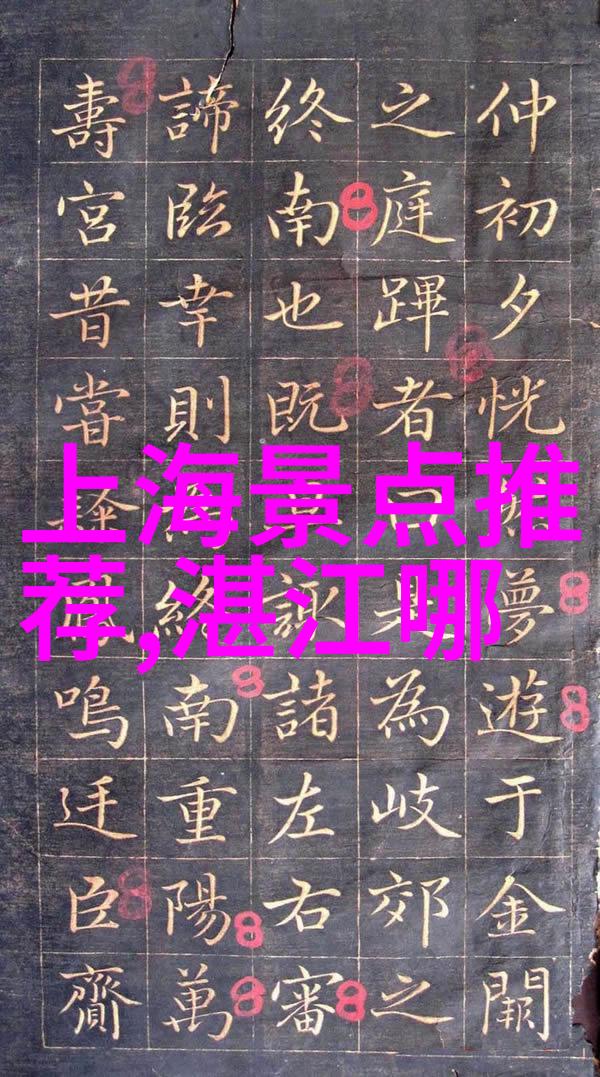 仲初夕恍夢遊于金闕
之庭蹕者曰是為岐郊之
終南也既諏諸左右審
諦臨幸則終南重陽萬
壽宮昔嘗鳴廷臣齎
上海景点推
荐,湛江哪